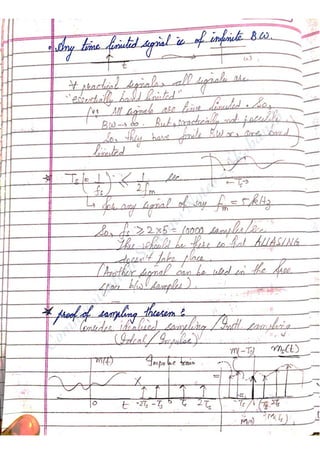 • Any time limited signal is of infinite B.W.
t
ω
* practical signals, all signals are
"essentially band limited"
[∵ All signals are time limited. So,
BW→∞. But, practically not possible
So, they have finite BW & are band
limited
← Ts →
* Ts (= 1/fs) ≤ 1/2fm sec
↳ for any signal of say fm = 5 kHz
So, fs ≥ 2×5 = 10000 samples/sec.
This should be there so that ALIASING
doesn't take place.
(Another signal can be used in the free
space b/w samples).
* proof of sampling theorem :
Consider idealised sampling / Instt sampling
(Ideal / Impulse)
m(t) Impulse train m(-Ts) ms(t)
X =
0 t -2Ts -Ts 0 Ts 2Ts -Ts Ts 2Ts
m(0) m(Ts)